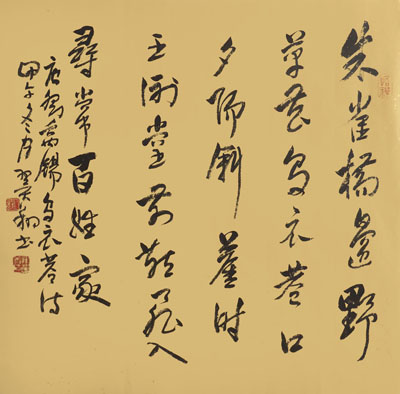 朱雀橋邊野
草花烏衣巷口
夕陽斜舊時
王謝堂前燕飛入
尋常百姓家
唐劉禹錫烏衣巷詩
甲午冬月書